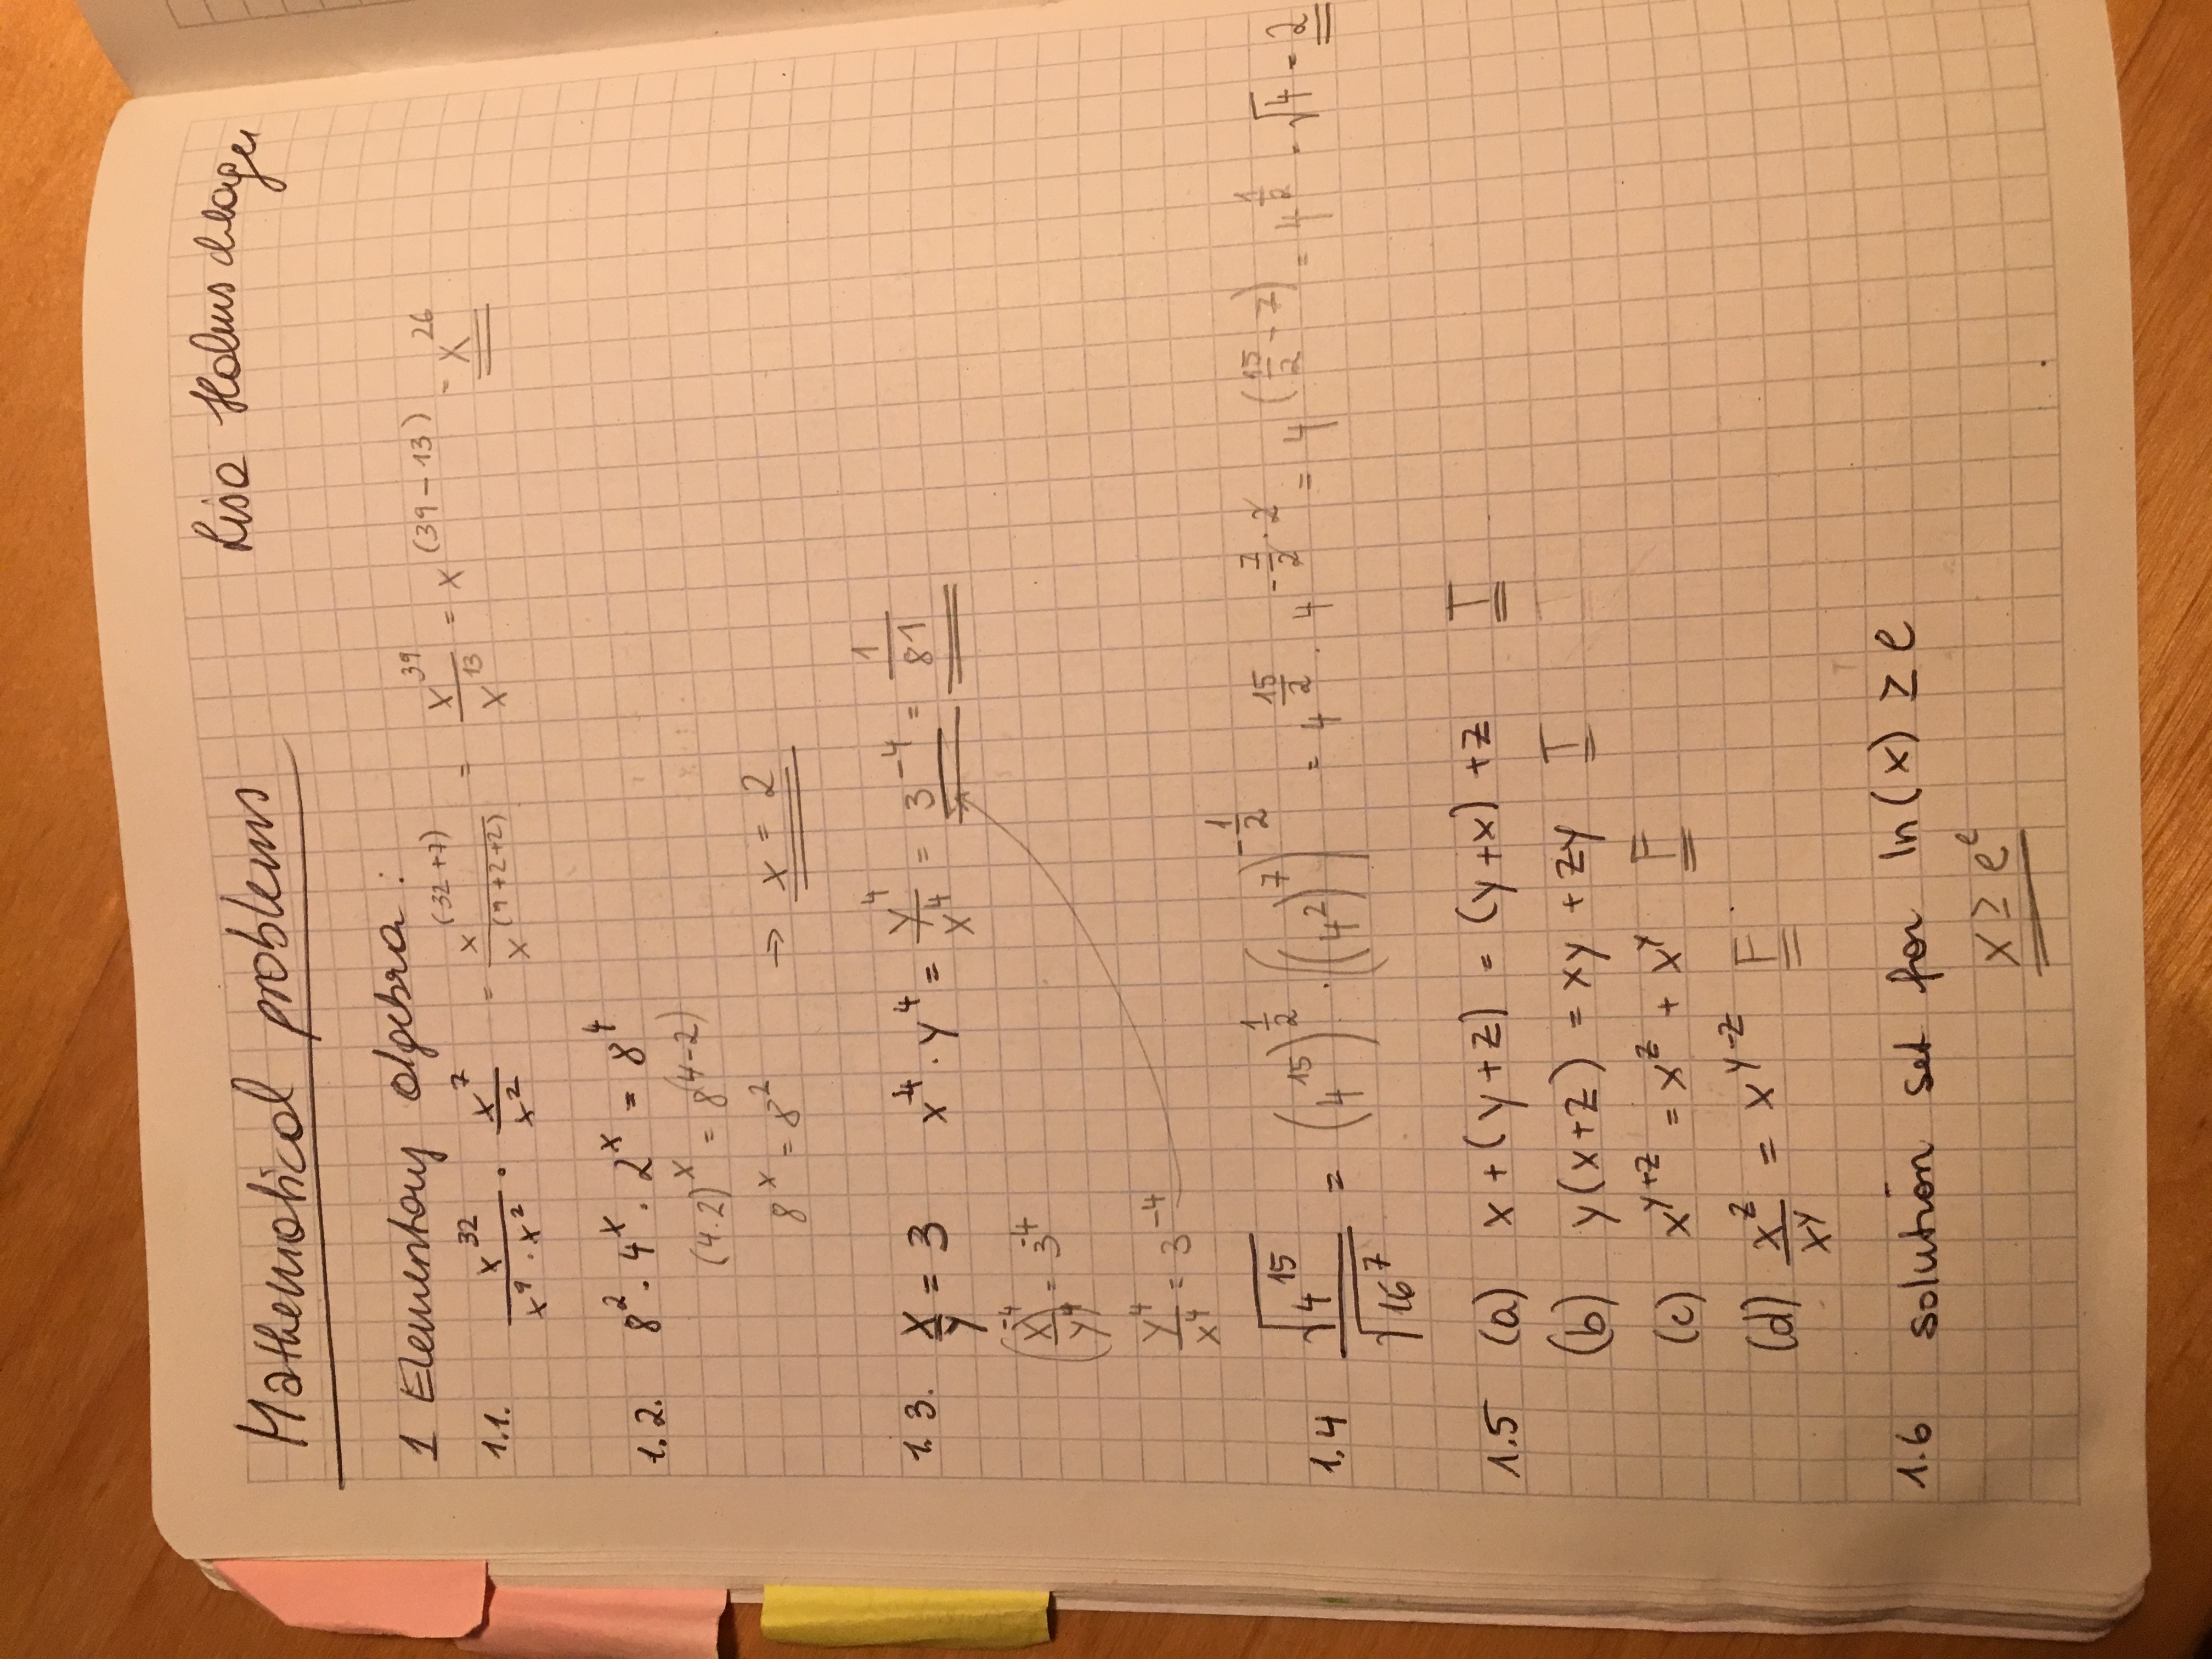 Mathematical problems
1 Elementary algebra :
1.1. x^32 / (x^9 · x^2) · x^7 / x^2 = x^(32+7) / x^(9+2+2) = x^39 / x^13 = x^(39-13) = x^26
1.2. 8^2 · 4^x · 2^x = 8^4
(4·2)^x = 8^(4-2)
8^x = 8^2 → x = 2
1.3. x/y = 3 x^-4 · y^4 = y^4 / x^4 = 3^-4 = 1/81
(x^-4 / y^-4) = 3^-4
y^4 / x^4 = 3^-4
1.4 √(4^15) / √(16^7) = (4^15)^(1/2) · ((4^2)^7)^(-1/2) = 4^(15/2) · 4^(-7/2 · 2) = 4^(15/2 - 7) = 4^(1/2) = √4 = 2
1.5 (a) x + (y+z) = (y+x) + z T
(b) y(x+z) = xy + zy T
(c) x^(y+z) = x^z + x^y F
(d) x^z / x^y = x^(y-z) F
1.6 solution set for ln(x) ≥ e
x ≥ e^e